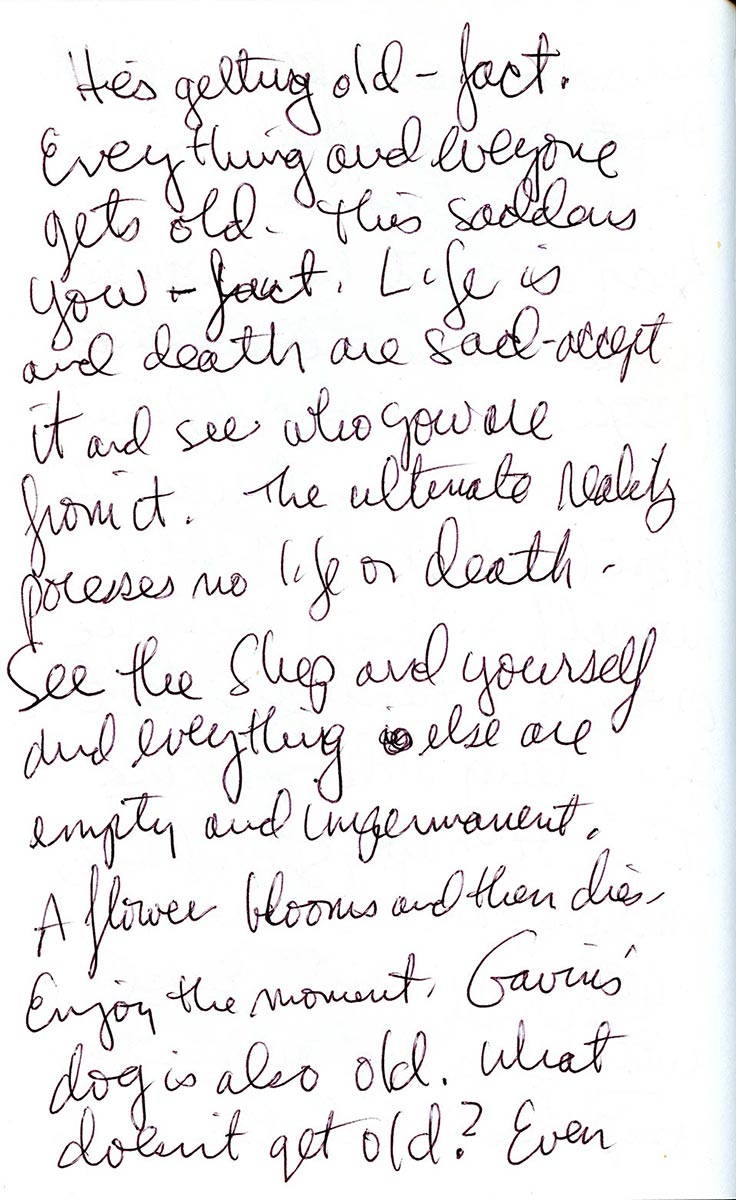 He's getting old - fact.
Everything and everyone
gets old. This saddens
you - fact. Life is
and death are sad - accept
it and see who you are
from it. The ultimate reality
posesses no life or death.
See the Shep and yourself
and everything else are
empty and impermanent.
A flower blooms and then dies.
Enjoy the moment. Gavin's
dog is also old. What
doesn't get old? Even